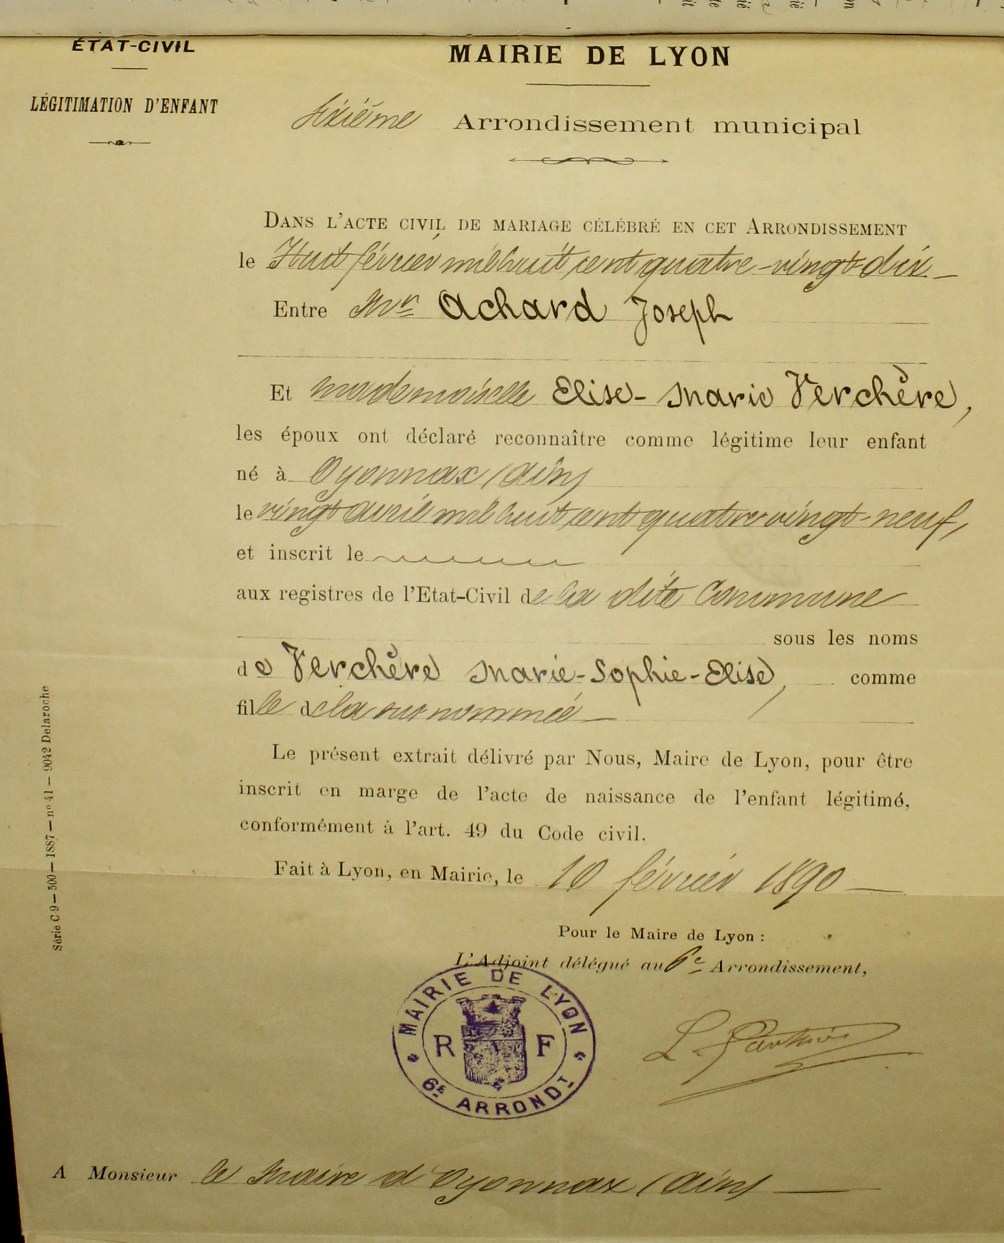 ÉTAT-CIVIL
LÉGITIMATION D'ENFANT
MAIRIE DE LYON
Sixième Arrondissement municipal
DANS L'ACTE CIVIL DE MARIAGE CÉLÉBRÉ EN CET ARRONDISSEMENT
le Huit février mil huit cent quatre-vingt-dix
Entre Mr Achard Joseph
Et mademoiselle Elise-Marie Verchère,
les époux ont déclaré reconnaître comme légitime leur enfant
né à Oyonnax (Ain)
le vingt avril mil huit cent quatre vingt-neuf,
et inscrit le
aux registres de l'Etat-Civil de la dite Commune
sous les noms
de Verchère Marie-Sophie-Elise, comme
fille de la sus nommée
Le présent extrait délivré par Nous, Maire de Lyon, pour être
inscrit en marge de l'acte de naissance de l'enfant légitimé,
conformément à l'art. 49 du Code civil.
Fait à Lyon, en Mairie, le 10 février 1890
Pour le Maire de Lyon :
L'Adjoint délégué au 6e Arrondissement,
MAIRIE DE LYON
R F
6E ARRONDT
A Monsieur le Maire d'Oyonnax (Ain)
Série C 9 — 500 — 1887 — n° 41 — 9042 Delaroche